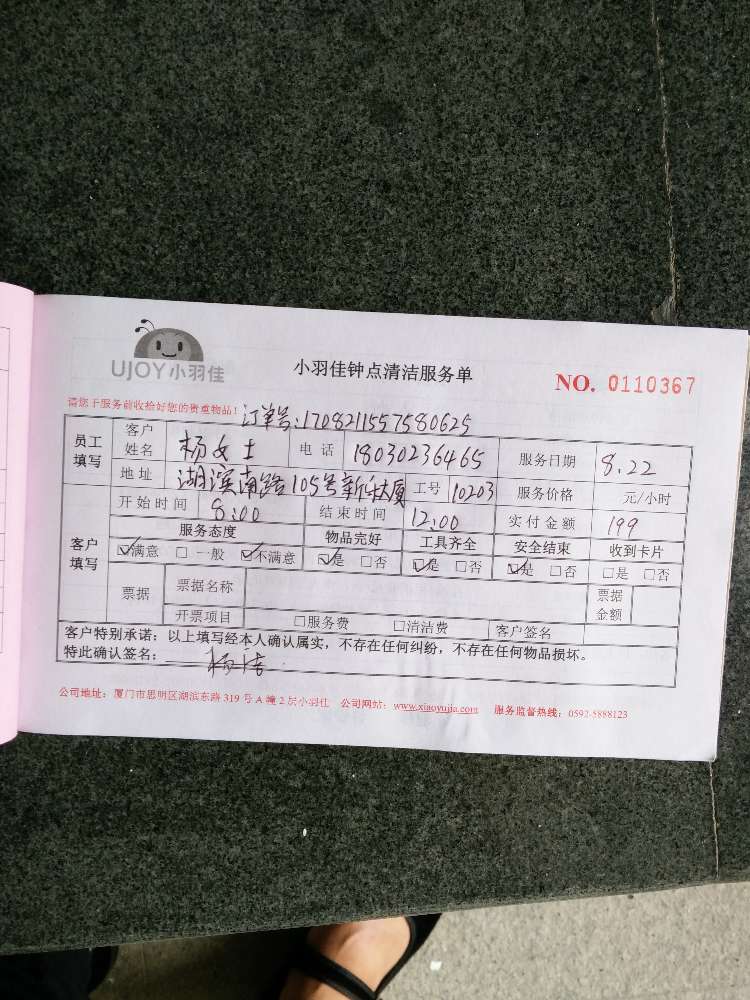 UJOY小羽佳
小羽佳钟点清洁服务单
NO. 0110367
请您于服务前收拾好您的贵重物品！订单号:1708211557580625
员工填写 客户姓名 杨女士 电话 18030236465 服务日期 8.22
地址 湖滨南路105号新 大厦 工号 10203 服务价格 元/小时
开始时间 8:00 结束时间 12:00 实付金额 199
客户填写 服务态度 物品完好 工具齐全 安全结束 收到卡片
☑满意 □一般 ☑不满意 ☑是 □否 ☑是 □否 ☑是 □否 □是 □否
票据 票据名称 票据金额
开票项目 □服务费 □清洁费 客户签名
客户特别承诺：以上填写经本人确认属实，不存在任何纠纷，不存在任何物品损坏。
特此确认签名： 杨洁
公司地址：厦门市思明区湖滨东路 319 号 A 幢 2 层小羽佳 公司网站：www.xiaoyujia.com 服务监督热线：0592-5888123